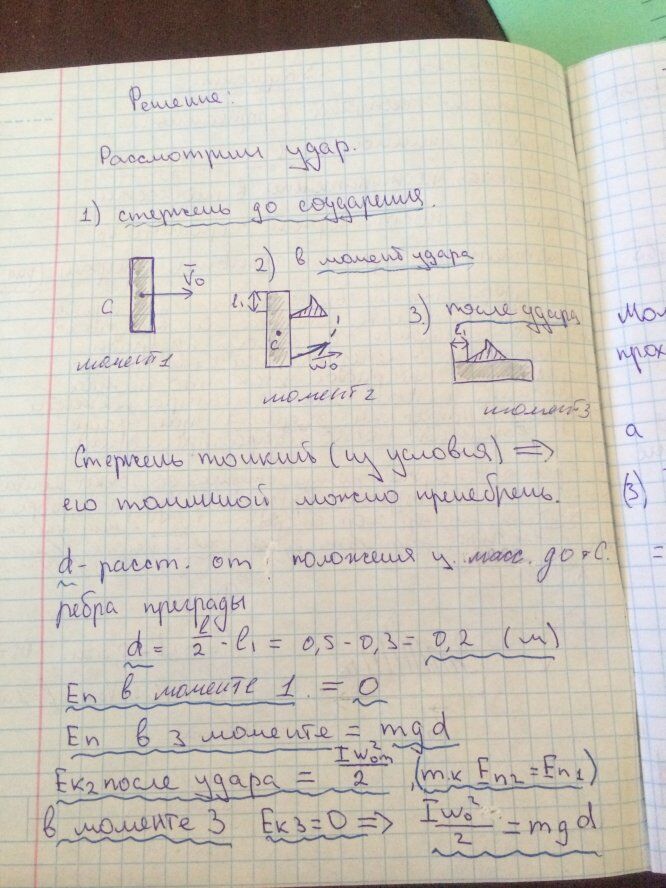 Решение:
Рассмотрим удар.
1) стержень до соударения.
2) в момент удара
3) после удара
C
V̄₀
l₁
C
w̄₀
l₁
момент 1
момент 2
момент 3
Стержень тонкий (из условия) ⇒
его толщиной можно пренебречь.
d - расст. от положения ц. масс. до
ребра преграды
d = l/2 - l₁ = 0,5 - 0,3 = 0,2 (м)
Eп в моменте 1 = 0
Eп в 3 моменте = mgd
Eк₂ после удара = Iw₀²/2 , (т.к Eп₂ = Eп₁)
в моменте 3 Eк3 = 0 ⇒ Iw₀²/2 = mgd
Мол
прох
а
(3)
=